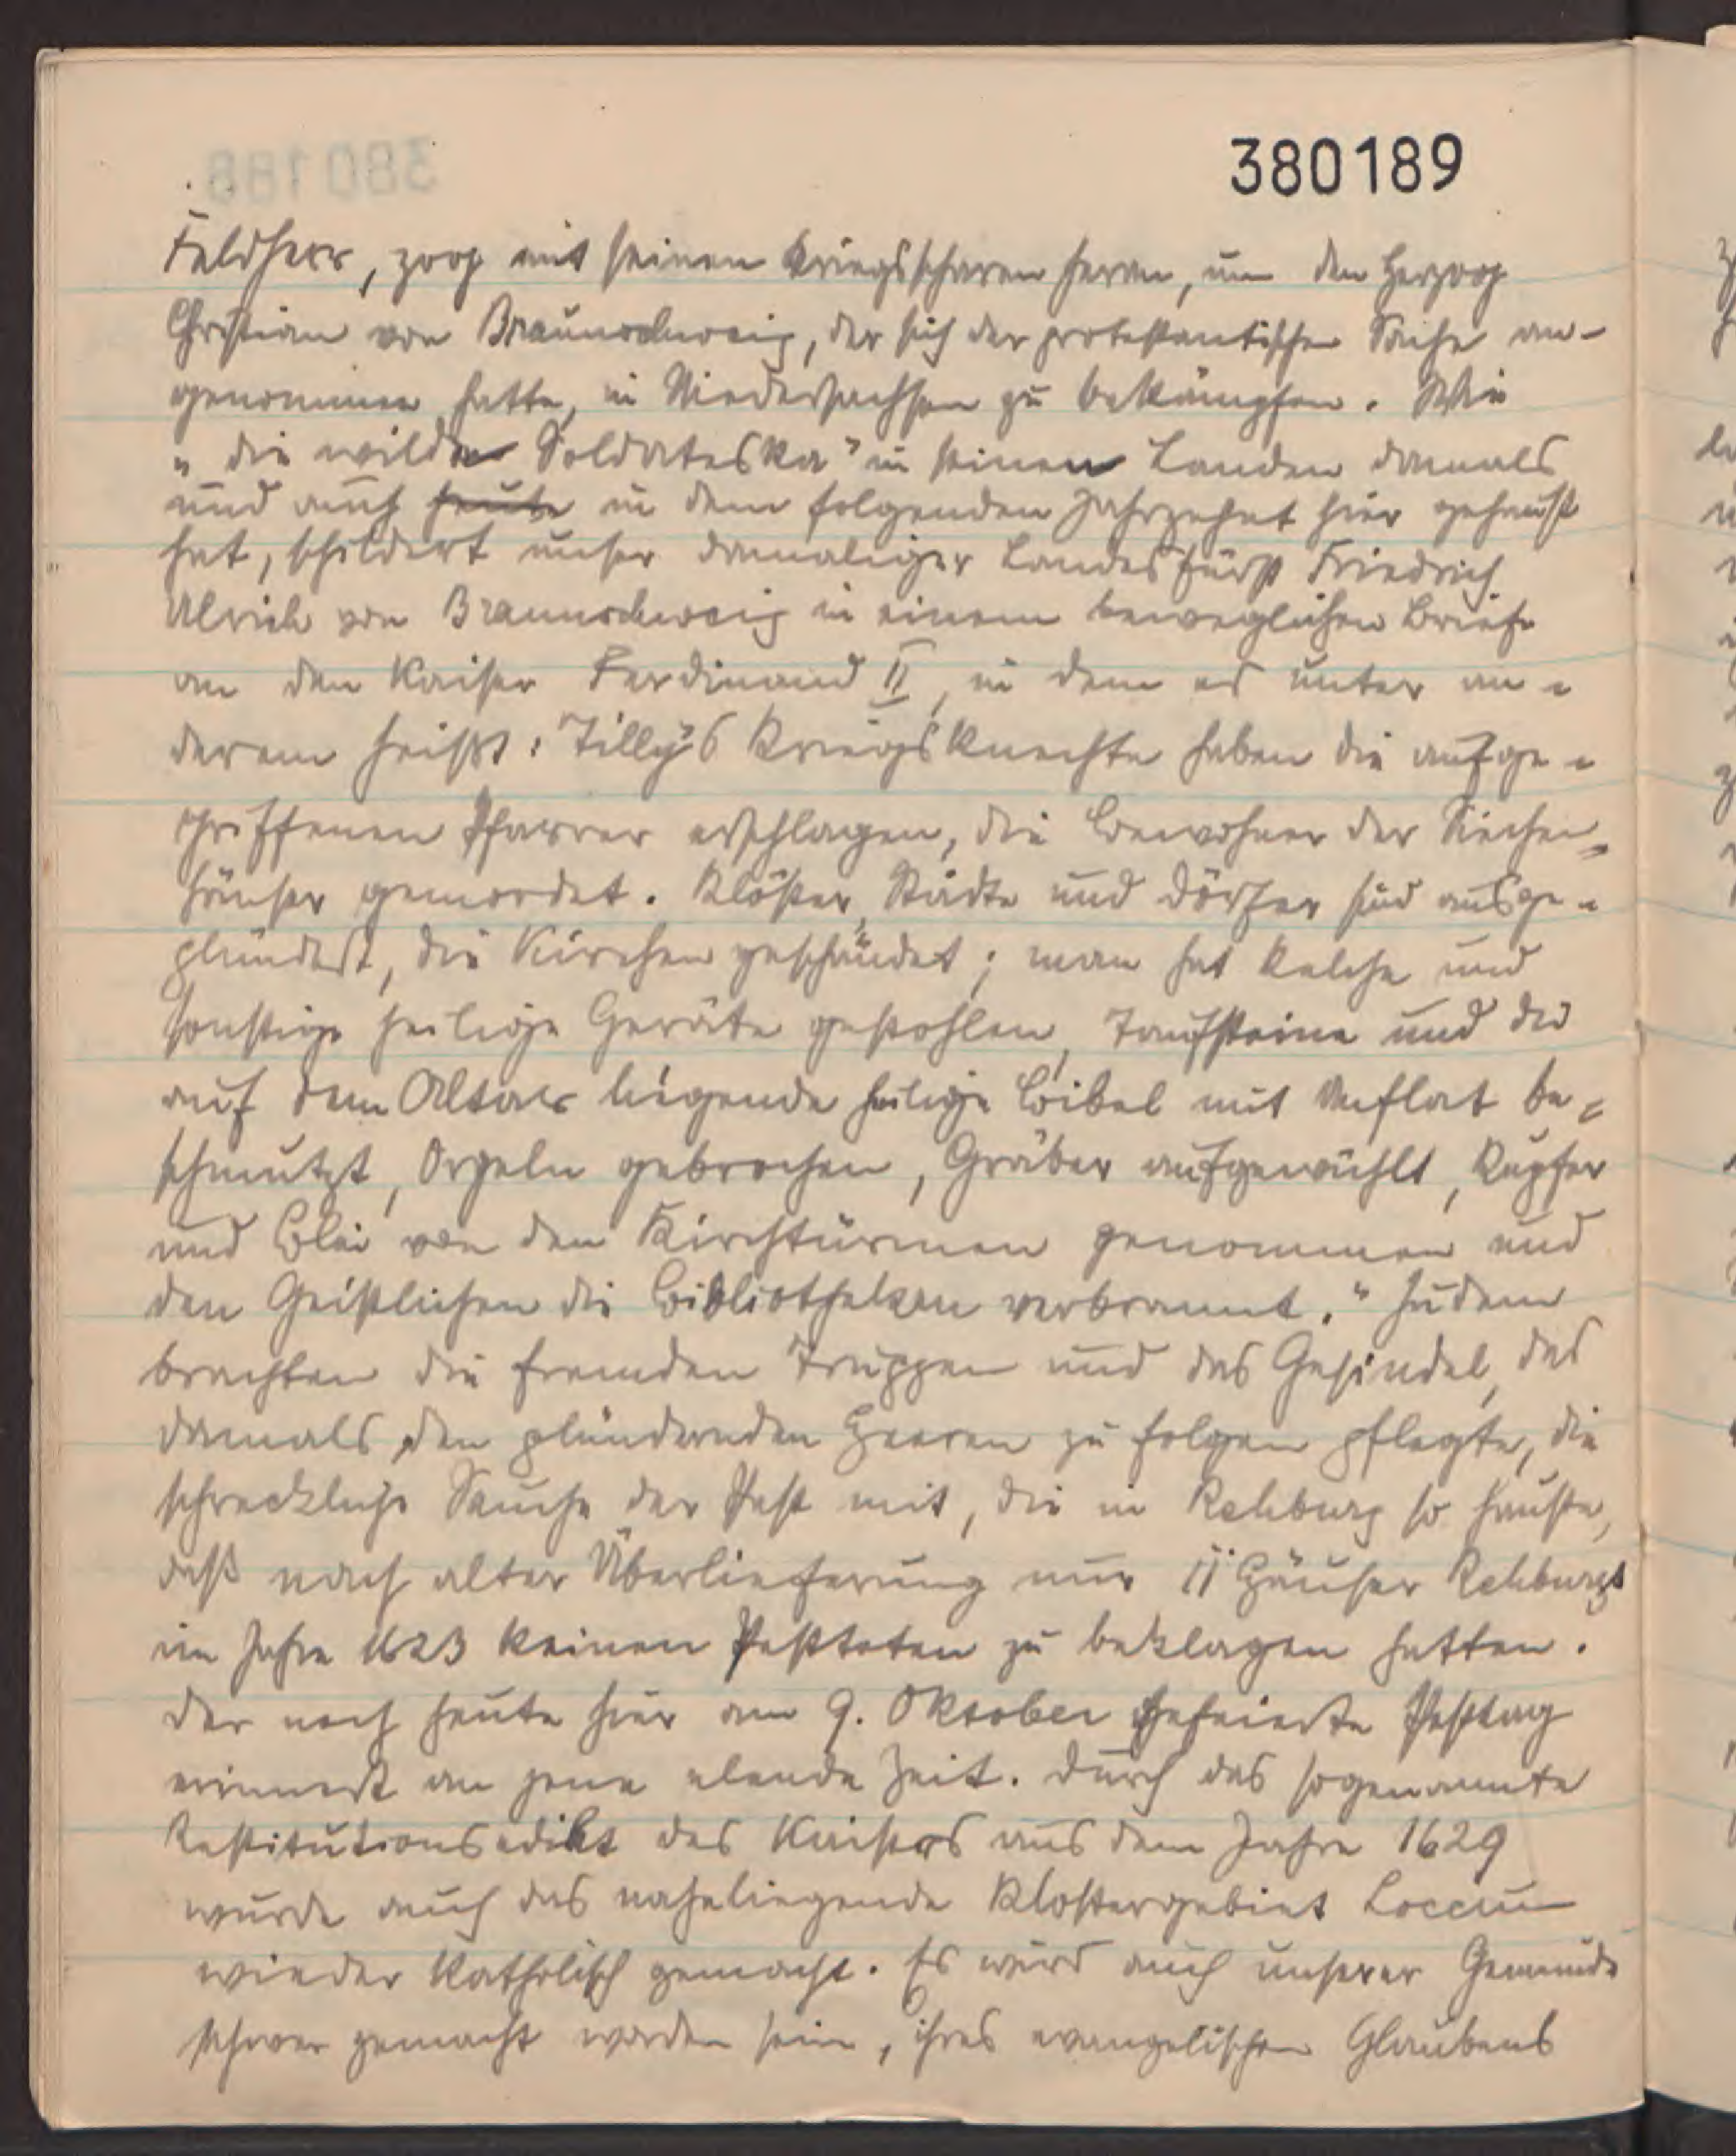 380189
Feldherr, zoog mit seinen Kriegsscharen heran, um den Herzoog
Christian von Braunschweig, der sich der protestantischen Sache an-
genommen hatte, in Niedersachsen zu bekämpfen. Wie
„die wilde Soldateska" in seinen Landen damals
und auch heute in dem folgenden Jahrzehnt hier gehaust
hat, schildert unser damaliger Landesfürst Friedrich
Ulrich von Braunschweig in einem beweglichen Briefe
an den Kaiser Ferdinand II, in dem es unter an-
derem heißt: "Tilly's Kriegsknechte haben die aufge-
griffenen Pfarrer erschlagen, die Bewohner der Siechen-
häuser gemordet. Klöster, Städte und Dörfer sind ausge-
plündert, die Kirchen geschändet; man hat Kelche und
sonstige heilige Geräte gestohlen, Taufsteine und die
auf dem Altar liegende heilige Bibel mit Unflat be-
schmutzt, Orgeln gebrochen, Gräber aufgewühlt, Kupfer
und Blei von den Kirchtürmen genommen und
den Geistlichen die Bibliotheken verbrannt." Zudem
brachten die fremden Truppen und das Gesindel, das
damals den plündernden Heeren zu folgen pflegte, die
schreckliche Seuche der Pest mit, die in Rehburg so hauste,
daß nach alter Überlieferung nur 11 Häuser Rehburgs
im Jahre 1623 keinen Pesttoten zu beklagen hatten.
Der noch heute hier am 9. Oktober gefeierte Pesttag
erinnert an jene elende Zeit. Durch das sogenannte
Restitutionsedikt des Kaisers aus dem Jahre 1629
wurde auch das naheliegende Klostergebiet Loccum
wieder katholisch gemacht. Es wird auch unserer Gemeinde
schwer gemacht worden sein, ihres evangelischen Glaubens